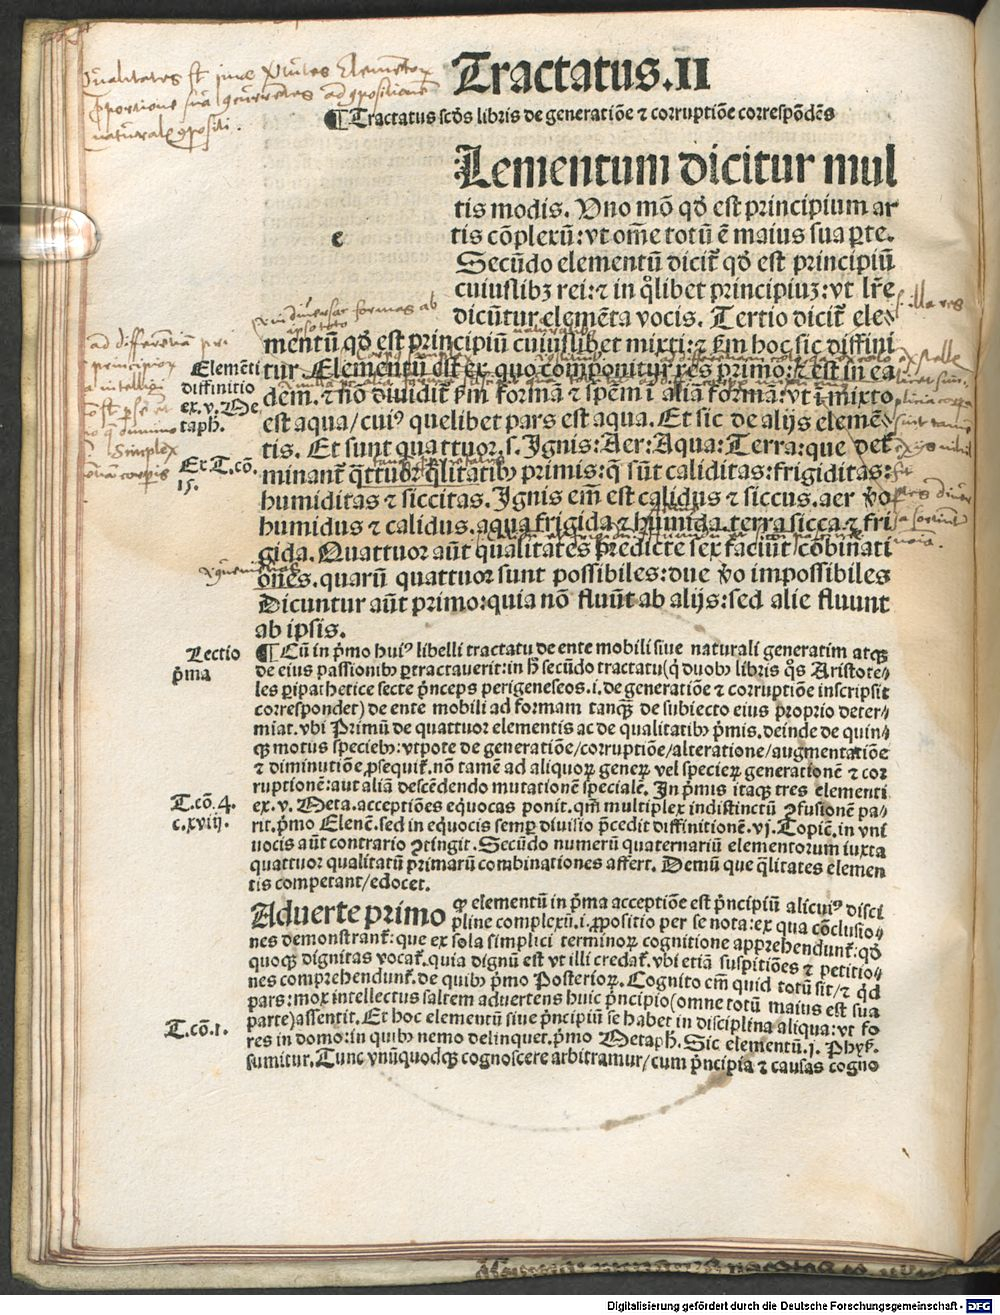 Tractatus.II
¶Tractatus scd̄s libris de generatiōe ⁊ corruptiōe correspōdēs
Lementum dicitur mul
tis modis. Uno mō qd̄ est principium ar
e
tis cōplexū: vt om̄e totū ē maius sua ꝑte.
Secūdo elementū dicit̄ qd̄ est principiū
cuiuslibꝫ rei: ⁊ in q̄libet principiuꝫ: vt lr̄e
dicūtur elemēta vocis. Tertio dicit̄ ele⸗
mentū qd̄ est principiū cuiuslibet mixti: ⁊ ẜm hoc sic diffini
Elemēti
diffinitio
ex. v. Me
taph.
tur Elementū est ex quo componitur res primo: ⁊ est in ea
dem. ⁊ nō diuidit̄ ẜm formā ⁊ spēm ī aliā formā: vt ī mixto
est aqua/cuiꝰ quelibet pars est aqua. Et sic de alijs elemē⸗
tis. Et sunt quattuor. s. Ignis: Aer: Aqua: Terra: que det̄
Ex T. cō.
15.
minant̄ q̄ttuor q̄litatibꝫ primis: q̄ sūt caliditas: frigiditas:
humiditas ⁊ siccitas. Ignis em̄ est calidus ⁊ siccus. aer ꝟo
humidus ⁊ calidus. aqua frigida ⁊ humida. terra sicca ⁊ fri
gida. Quattuor aūt qualitates p̄dicte sex faciūt cōbinati
ones. quarū quattuor sunt possibiles: due ꝟo impossibiles
Dicuntur aūt primo: quia nō fluūt ab alijs: sed alie fluunt
ab ipsis.
Lectio
p̄ma
¶ Cū in p̄mo huiꝰ libelli tractatu de ente mobili siue naturali generatim atqꝫ
de eius passionibꝫ ꝑtractauerit: in h̄ secūdo tractatu (q̇ duobꝫ libris q̄s Aristote⸗
les ꝑipathetice secte p̄nceps perigeneseos. i. de generatiōe ⁊ corruptiōe inscripsit
correspondet) de ente mobili ad formam tanqꝫ de subiecto eius proprio deter⸗
miat. vbi Primū de quattuor elementis ac de qualitatibꝫ p̄mis. deinde de quin⸗
qꝫ motus speciebꝫ: vtpote de generatiōe/corruptiōe/alteratione/augmentatiōe
⁊ diminutiōe ꝓsequit̄. nō tamē ad aliquoꝝ geneꝝ vel specieꝝ generationē ⁊ cor
ruptionē: aut aliā descēdendo mutationē specialē. In p̄mis itaqꝫ tres elementi
T. cō. 4.
c. xviij.
ex. v. Meta. acceptiōes eq̇uocas ponit. qm̄ multiplex indistinctū ꝯfusionē pa⸗
rit. p̄mo Elenc̄. sed in eq̇uocis semꝑ diuisio p̄cedit diffinitionē. vj. Topic̄. in vni
uocis aūt contrario ꝯtingit. Secūdo numerū quaternariū elementorum iuxta
quattuor qualitatū primarū combinationes affert. Demū que q̄litates elemen
tis competant/edocet.
Aduerte primo qꝫ elementū in p̄ma acceptiōe est p̄ncipiū alicuiꝰ disci
pline complexū. i. ꝓpositio per se nota: ex qua cōclusio⸗
nes demonstrant̄: que ex sola simplici terminoꝝ cognitione apprehendunt̄: qd̄
quoqꝫ dignitas vocat̄. quia dignū est vt illi credat̄. vbi etiā suspitiōes ⁊ petitio⸗
nes comprehendunt̄. de quibꝫ p̄mo Posterioꝝ. Cognito em̄ quid totū sit/⁊ q̇d
pars: mox intellectus saltem aduertens huic p̄ncipio (omne totū maius est sua
parte) assentit. Et hoc elementū siue p̄ncipiū se habet in disciplina aliqua: vt fo⸗
T. cō. 1.
res in domo: in quibꝫ nemo delinquet. p̄mo Metaph. Sic elementū. j. Phyẜ.
sumitur. Tunc vnūquodqꝫ cognoscere arbitramur/cum p̄ncipia ⁊ causas cogno
Digitalisierung gefördert durch die Deutsche Forschungsgemeinschaft - DFG